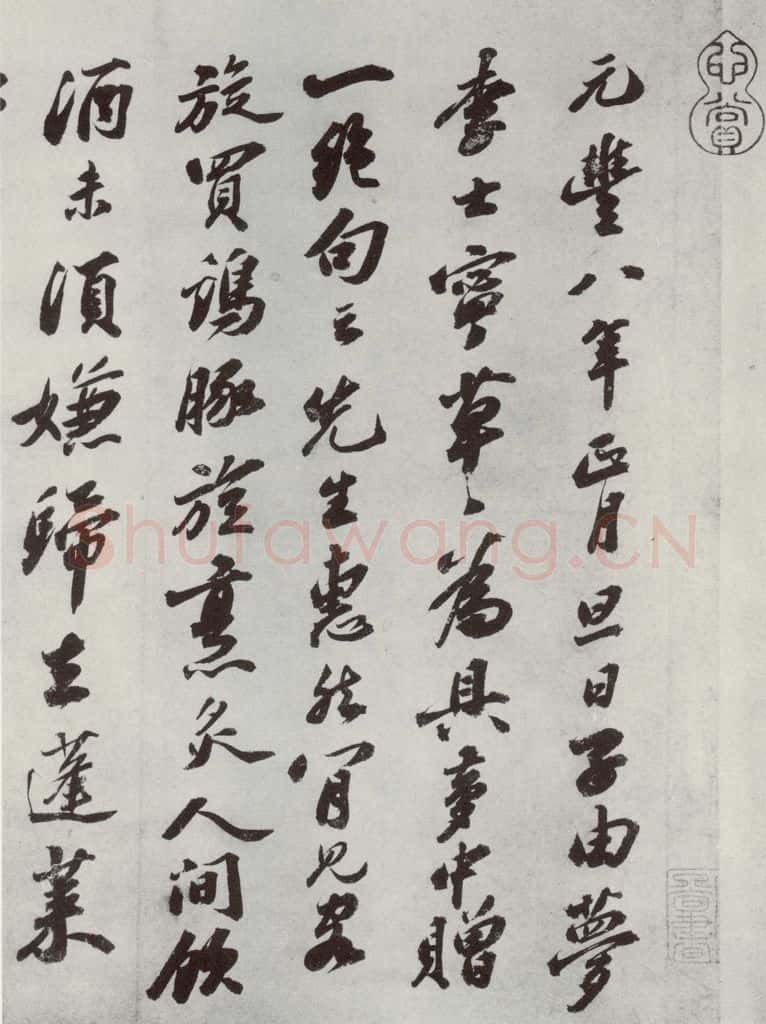 心賞
元豐八年正月旦日子由夢
李士寧草〻為具夢中贈
一絕句云先生惠然肯見客
旋買鷄豚旋烹炙人間飲
酒未須嫌歸去蓬萊
Shufawang.CN